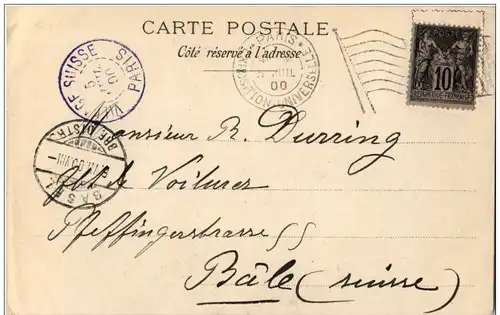 CARTE POSTALE
Côté réservé à l'adresse
PARIS
EXPOSITION UNIVERSELLE
00
POSTES
10
VILLAGE SUISSE PARIS
00
BASEL
BRF. DISTR.
Monsieur R. Durring
Voitures
Pfeffingerstrasse 55
Bâle (suisse)